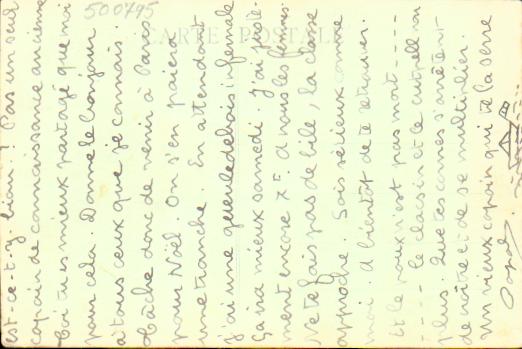 500795
CARTE POSTALE
est-ce-t-y bian! Pas un seul
copain de connaissance ancienne
toi tu es mieux partagé que moi
pour cela. Donne le bonjour
à tous ceux que je connais.
Tâche donc de venir à Paris
pour Noël. On s'en paiera
une tranche. En attendant
j'ai une gueule de bois infernale
Ça ira mieux samedi. J'ai
ment encore X F. A nous les femmes
Ne te fais pas de bile, la classe
approche. Sois sérieux comme
moi. A bientôt de te retrouver.
Et le roux n'est pas mort - - - -
- - - - le classin et le cutrelle non
plus. Que ces connes s'arrêtent
de naître et de se multiplier.
Un vieux copain qui te la serre